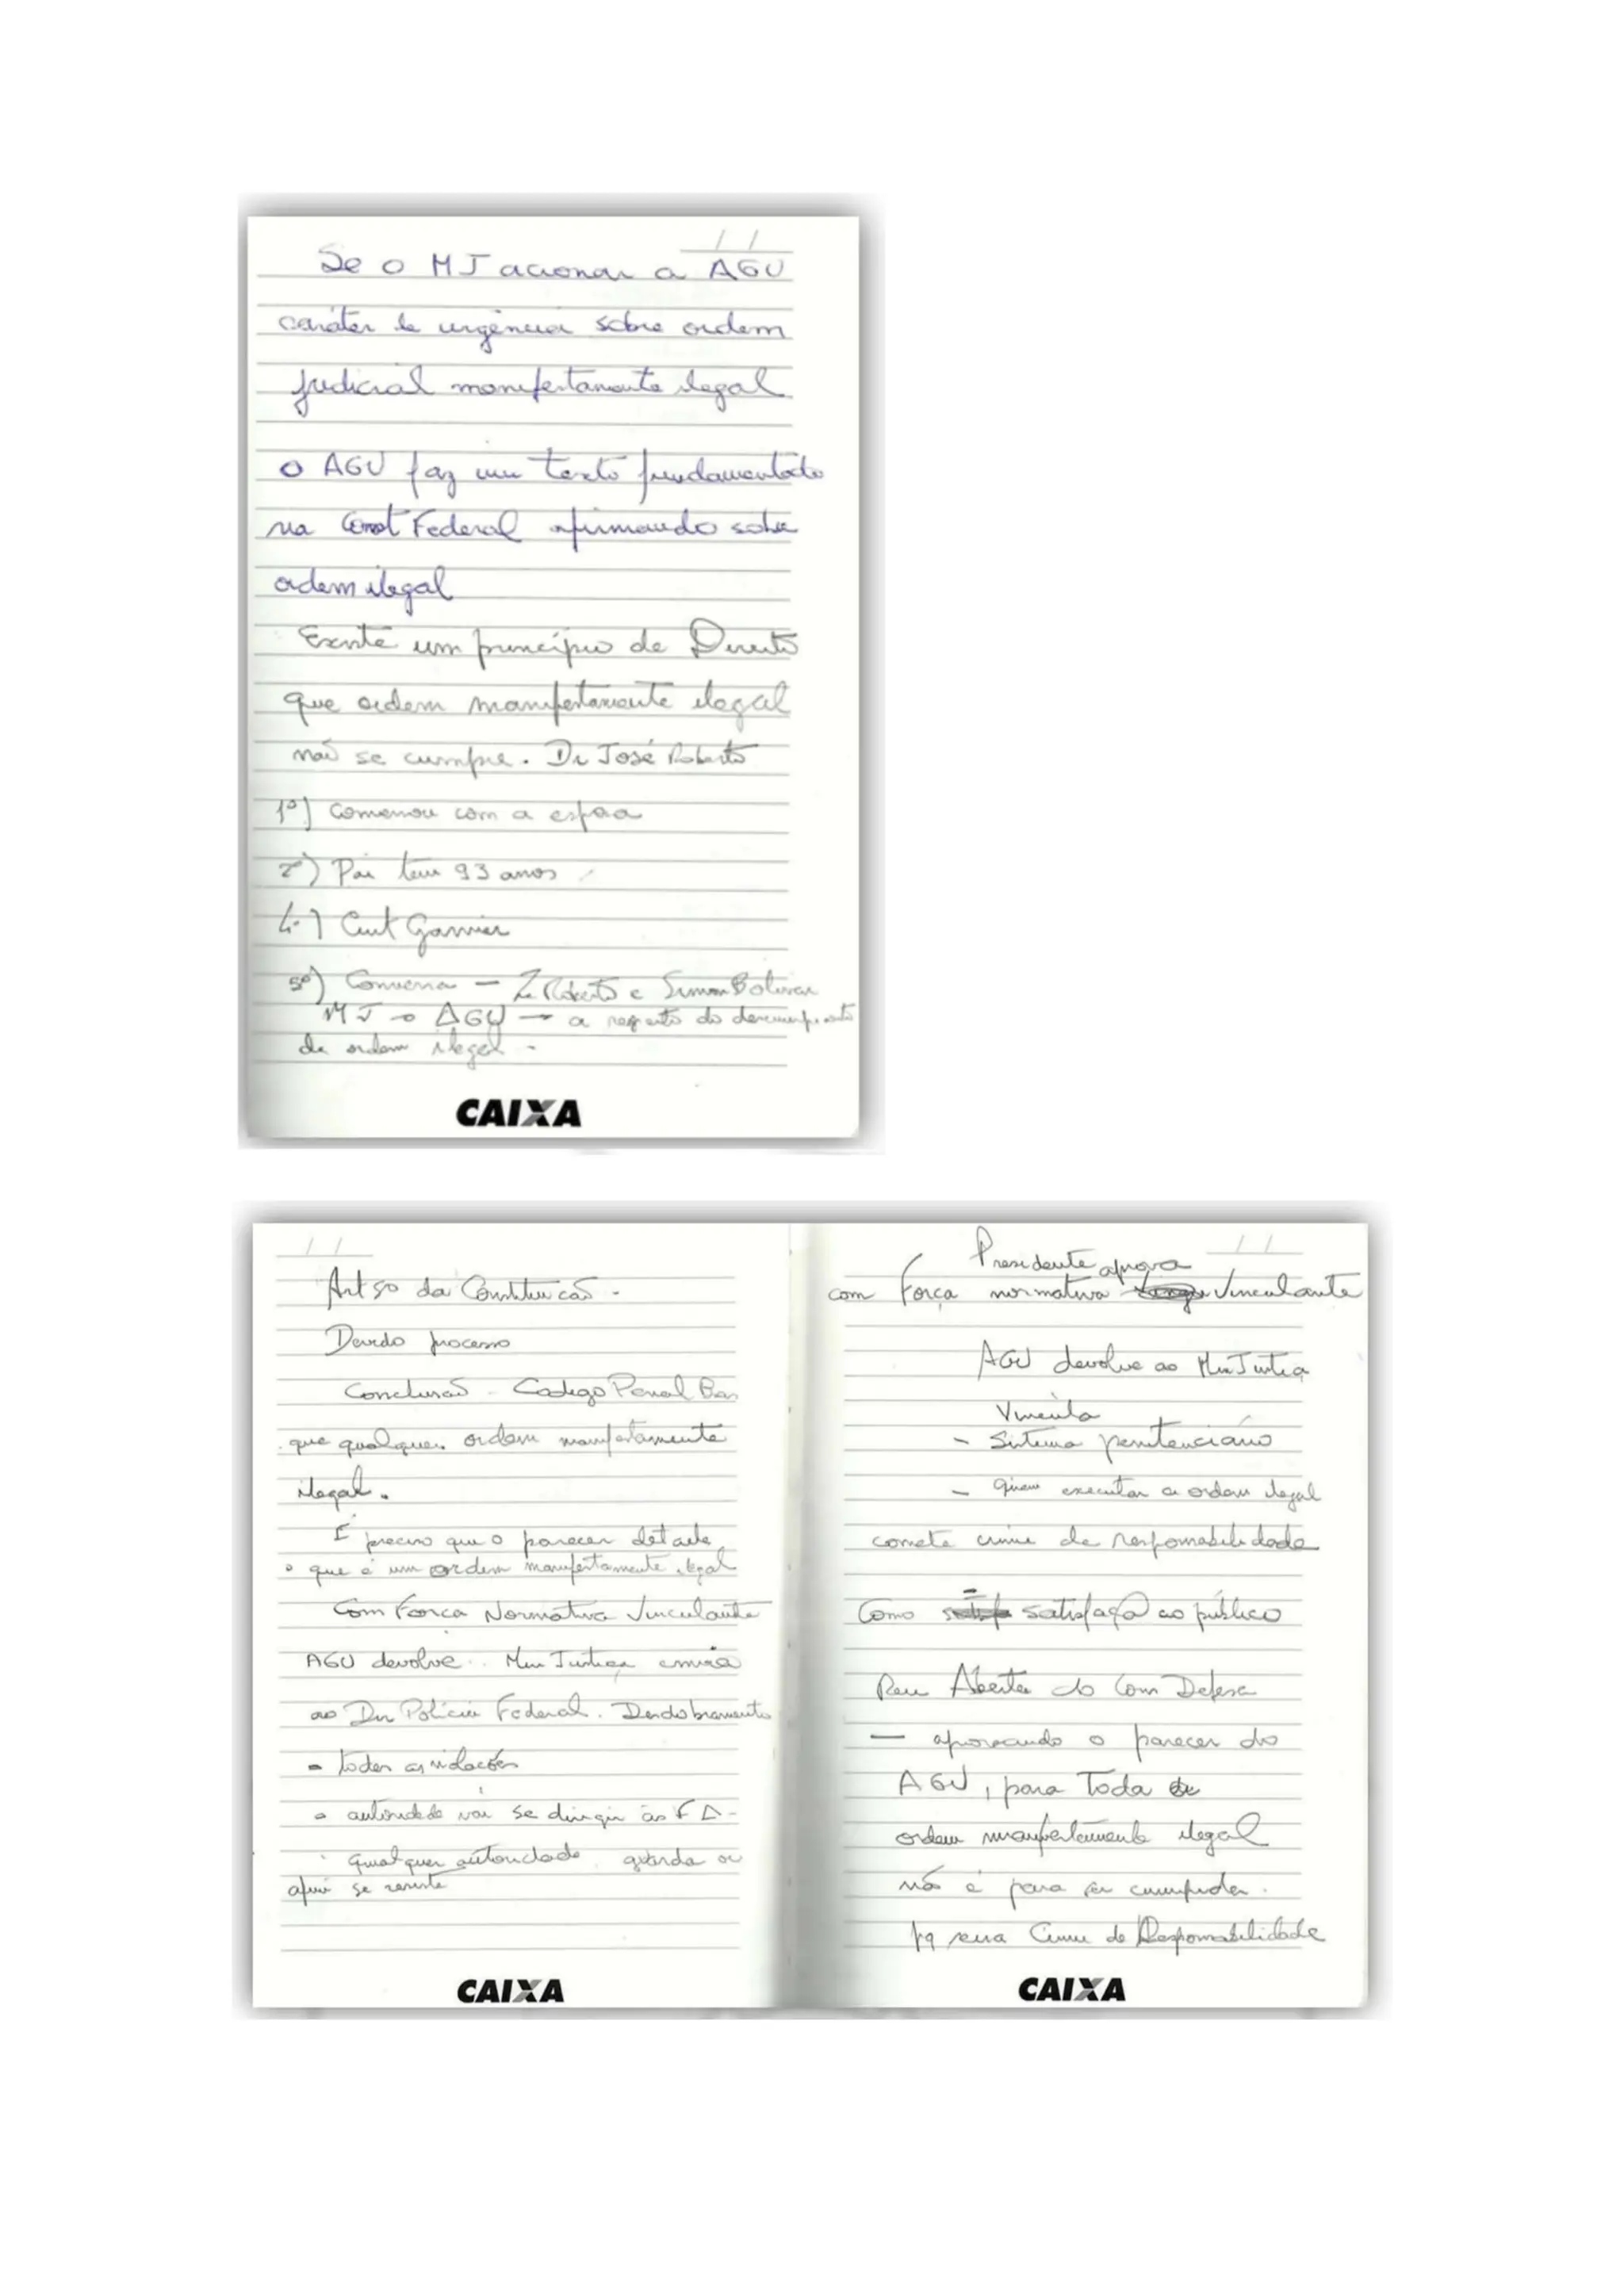 Se o MJ acionar a AGU
caráter de urgência sobre ordem
judicial manifestamente ilegal
o AGU faz um texto fundamentado
na Const Federal afirmando sobre
ordem ilegal
Existe um princípio de Direito
que ordem manifestamente ilegal
não se cumpre. Dr José Roberto
1º) com a
2º) Pai tem 93 anos
4.) Garnier
5º) Conversa - Zé Roberto e Simon Bolivar
MJ → AGU → a respeito do descumprimento
de ordem ilegal -
CAIXA
Art 5o da Constituição -
Devido processo
Conclusão - Codigo Penal Bras
que qualquer ordem manifestamente
ilegal.
É preciso que o parecer detalhe
o que é um ordem manifestamente ilegal
Com Força Normativa Vinculante
AGU devolve Min Justiça envia
ao Dir Polícia Federal. Desdobramento
- todas as
autoridade vai se dirigir às FA -
Qualquer autoridade guarda ou
se
CAIXA
Presidente aprova
com Força normativa Vinculante
AGU devolve ao Min Justiça
Vincula
- Sistema penitenciário
- quem executar a ordem ilegal
comete crime de responsabilidade
Como satisfaça ao público
Reu Aberta do Com Defesa
- aprovando o parecer do
AGU, para Toda
ordem manifestamente ilegal
não é para ser cumprida.
pq seria Crime de Responsabilidade
CAIXA